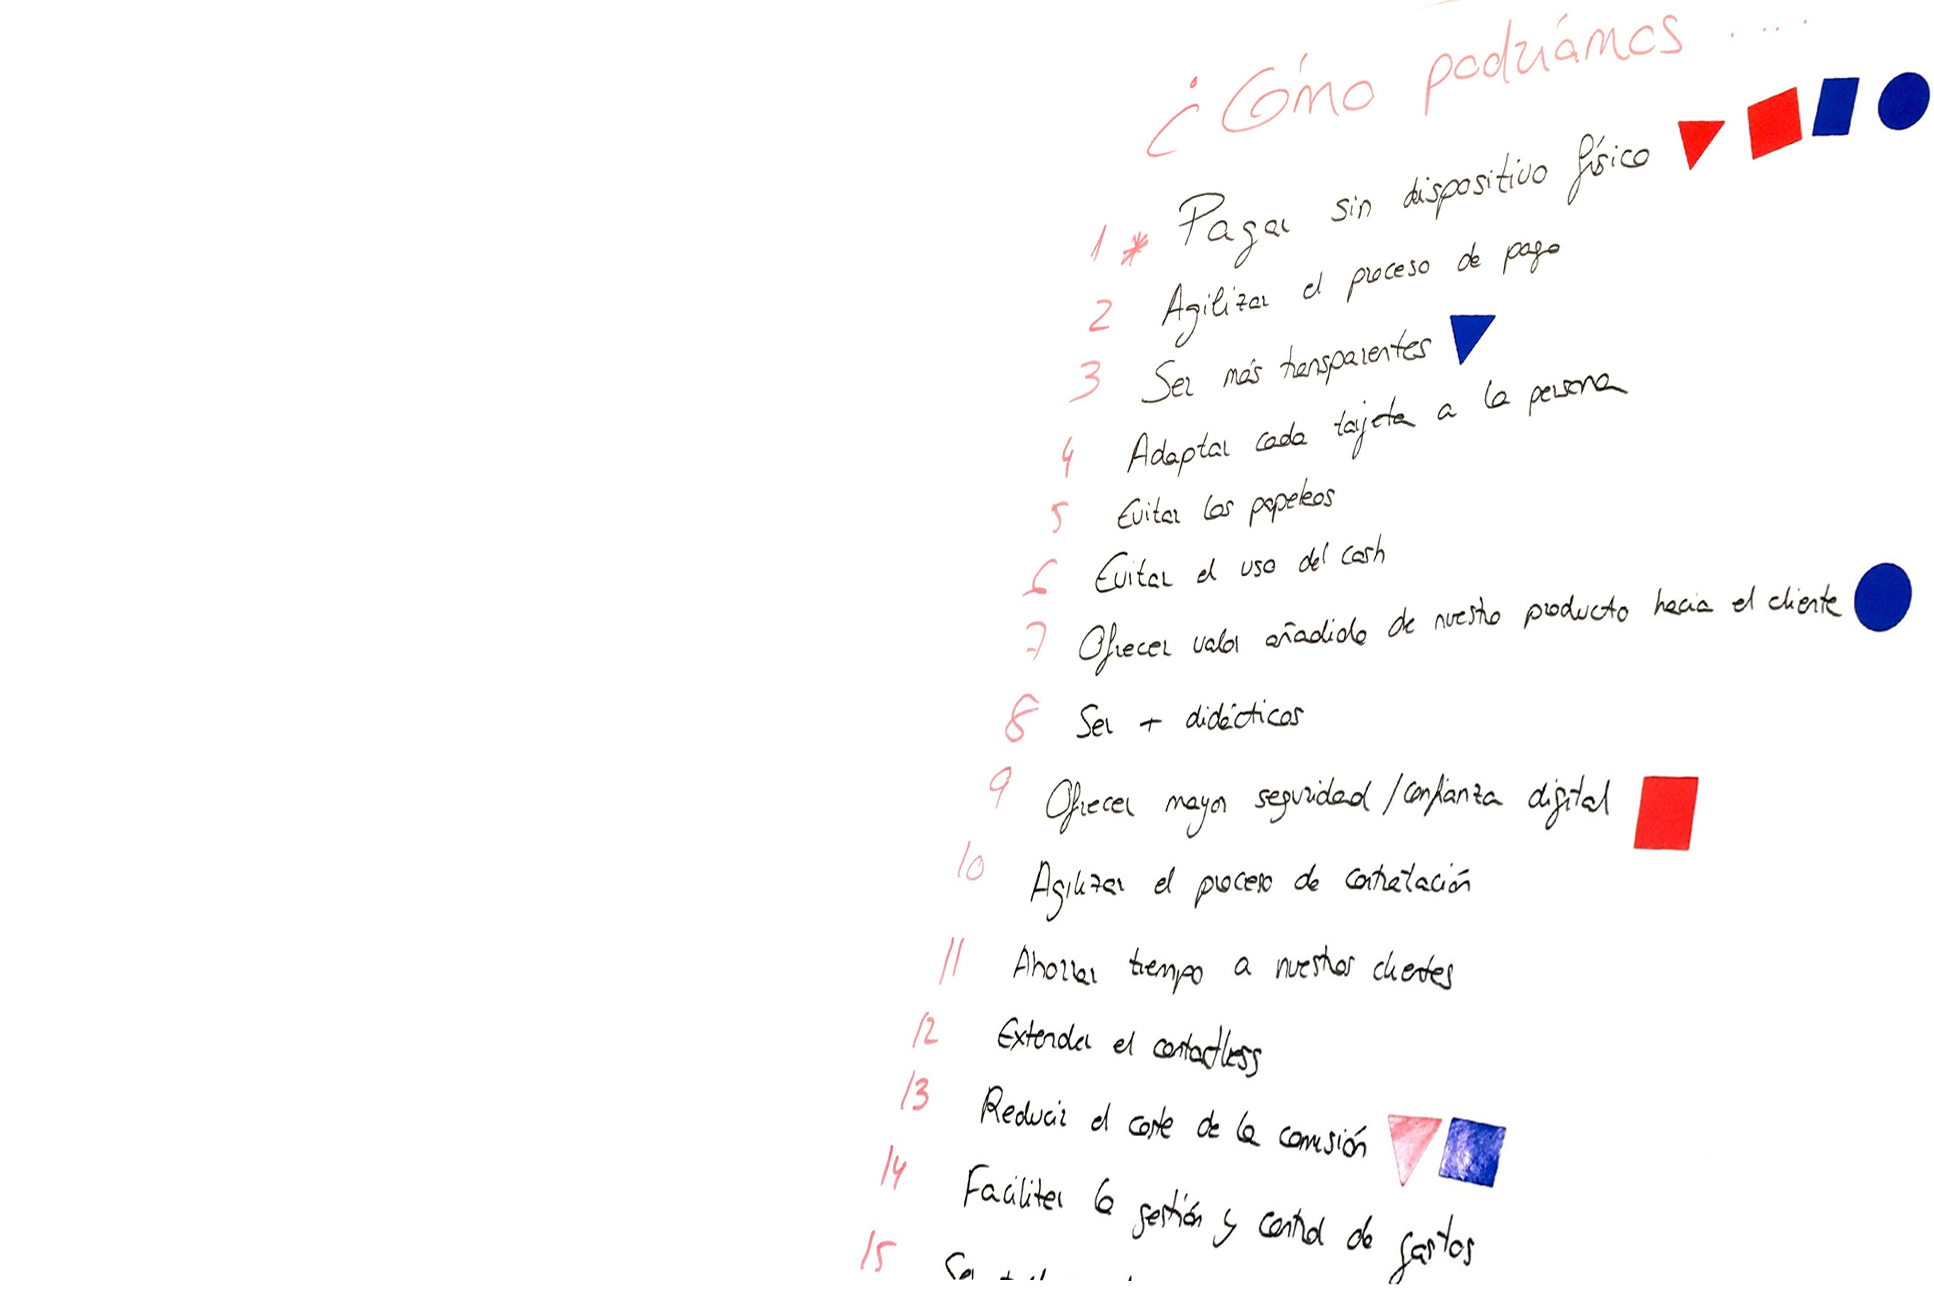 ¿Cómo podríamos .....
1 * Pagar sin dispositivo físico
2 Agilizar el proceso de pago
3 Ser más transparentes
4 Adaptar cada tarjeta a la persona
5 Evitar los papeleos
6 Evitar el uso del cash
7 Ofrecer valor añadido de nuestro producto hacia el cliente
8 Ser + didácticos
9 Ofrecer mayor seguridad/confianza digital
10 Agilizar el proceso de contratación
11 Ahorrar tiempo a nuestros clientes
12 Extender el contactless
13 Reducir el coste de la comisión
14 Facilitar la gestión y control de gastos
15